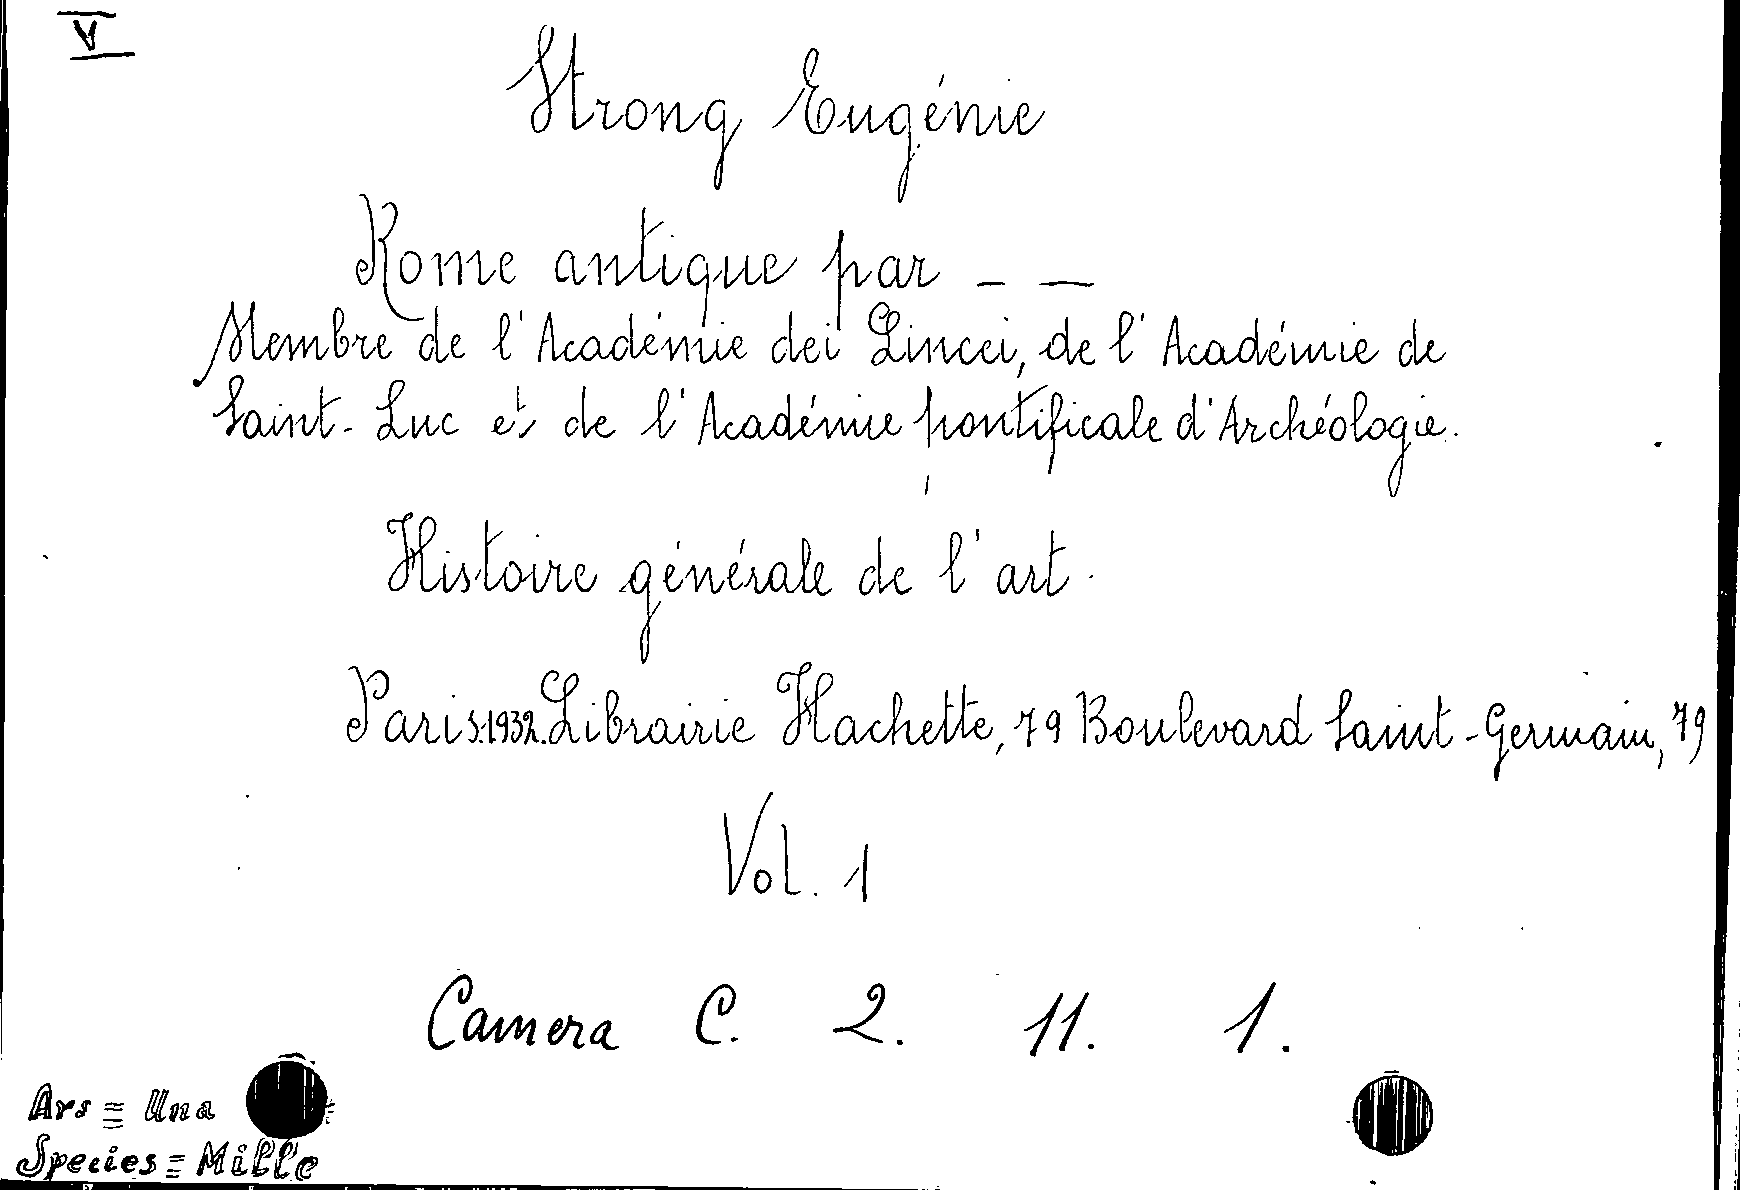 V
Strong Eugénie
Rome antique par _ _
Membre de l'Académie dei Lincei, de l'Académie de
Saint-Luc et de l'Académie pontificale d'Archéologie.
Histoire générale de l'art.
Paris.1932.Librairie Hachette, 79 Boulevard Saint-Germain, 79
Vol. 1
Camera C. 2. 11. 1.
Ars = Una
Species = Mille